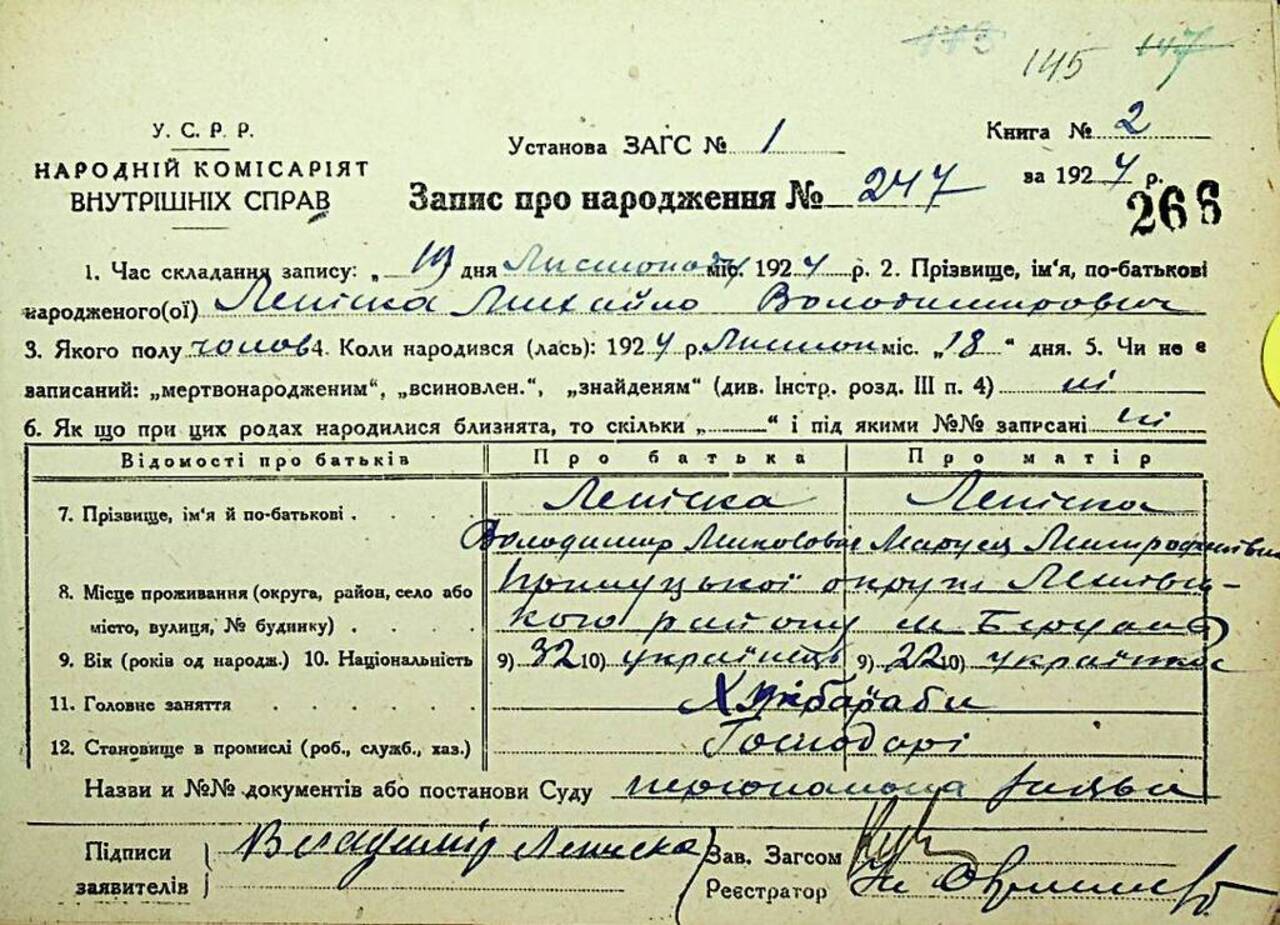 173 145 147
У. С. Р. Р.
НАРОДНІЙ КОМІСАРІЯТ
ВНУТРІШНІХ СПРАВ
Установа ЗАГС № 1
Книга № 2
за 1927 р.
Запис про народження № 247
266
1. Час складання запису: „ 19 дня Листопаду міс. 1927 р. 2. Прізвище, ім'я, по-батькові
народженого(ої) Лепіска Михайло Володимирович
3. Якого полу чолов 4. Коли народився (лась): 1927 р. Листоп міс. „18 “ дня. 5. Чи не є
записаний: „мертвонародженим“, „всиновлен.“, „знайденям“ (див. Інстр. розд. III п. 4) ні
6. Як що при цих родах народилися близнята, то скільки „ “ і під якими №№ записані ні
Відомості про батьків Про батька Про матір
7. Прізвище, ім'я й по-батькові . Лепіска Лепіска
Володимир Маруся
8. Місце проживання (округа, район, село або місто, вулиця, № будинку) . Прилуцької округи
кого району м
9. Вік (років од народж.) 10. Національність 9) 32 10) українець 9) 22 10) українка
11. Головне заняття
12. Становище в промислі (роб., служб., хаз.) Господарі
Назви и №№ документів або постанови Суду персональна заява
Підписи заявителів Владимір Лепіска
Зав. Загсом
Реєстратор